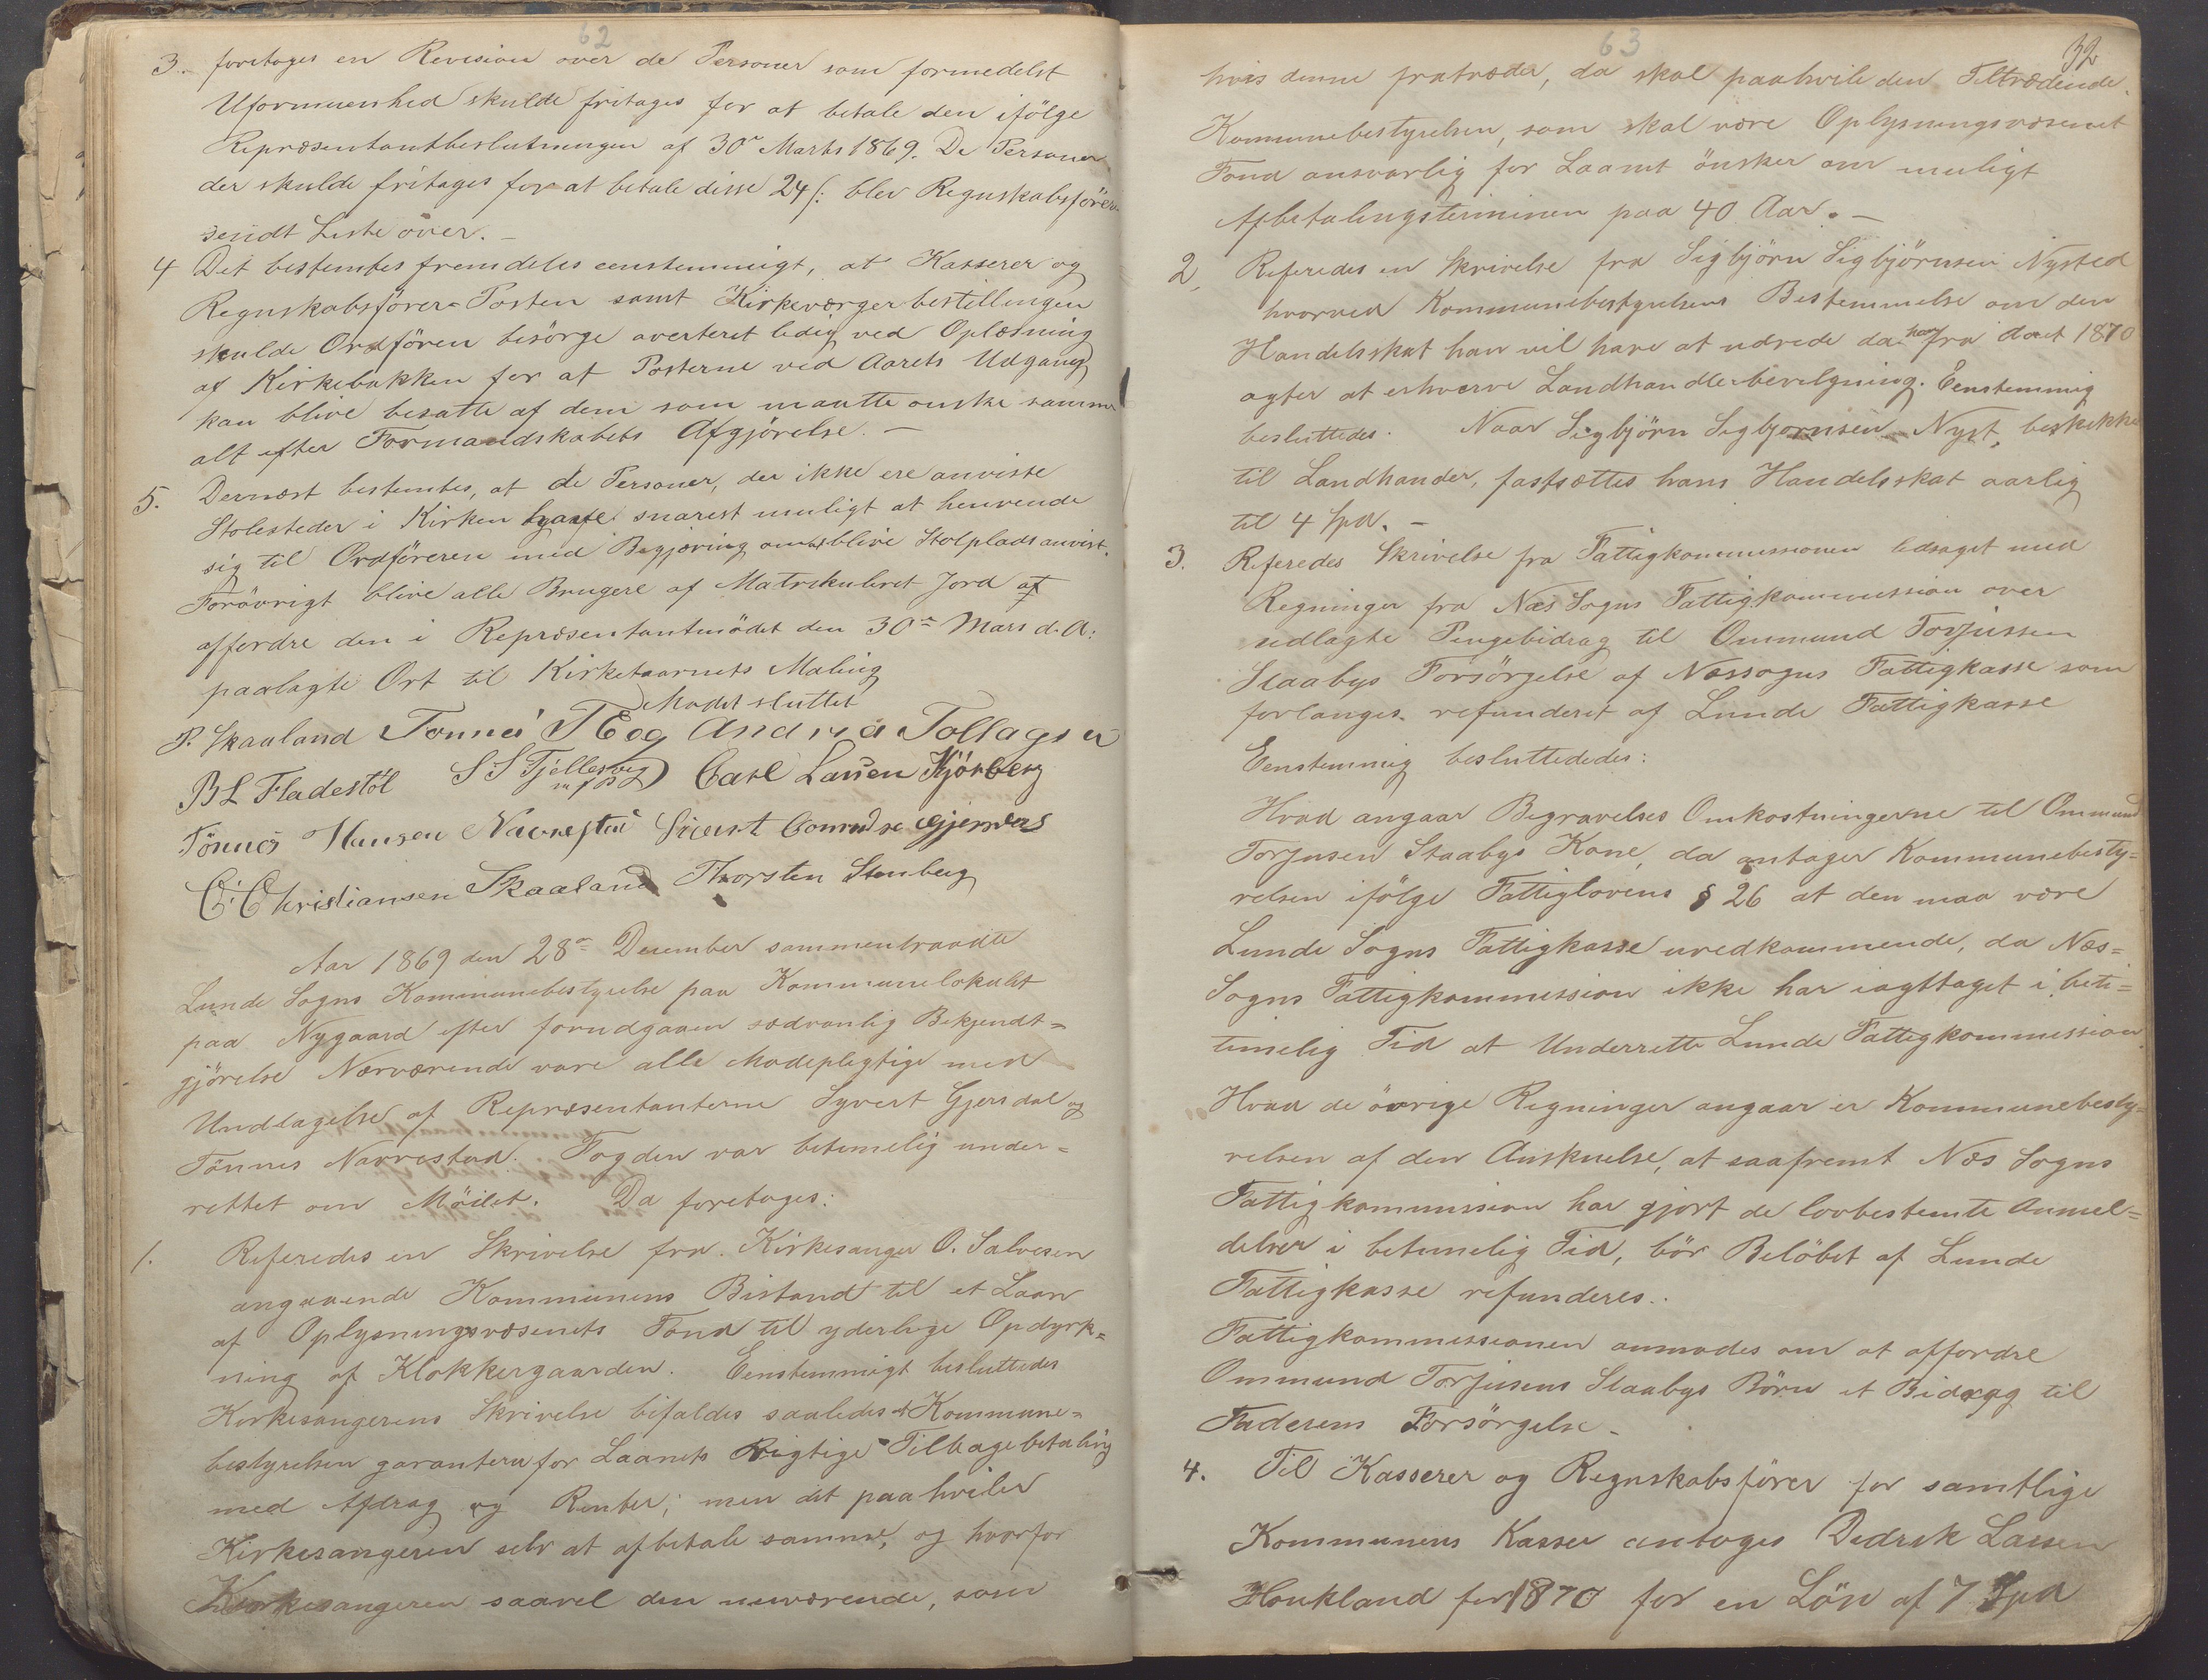 62
3. foretoges en Revision over de Personer som formedelst
Uformuenhed skulde fritages for at betale den ifölge
Repræsentantbeslutningen af 30te Marts 1869. De Personer
der skulde fritages for at betale disse 24 s: blev Regnskabsförer
sendt Liste over. —
4 Det bestemtes fremdeles eenstemmigt, at Kasserer og
Regnskabsförer-Posten samt Kirkeværgerbestillingen
skulde Ordfören besörge averteret ledig ved Oplæsning
af Kirkebakken for at Posterne ved Aarets Udgang
kan blive besatte af dem som maatte önske samme
alt efter Formandskabets Afgjörelse. —
5. Dernæst bestemtes, at de Personer, der ikke ere anviste
Stolesteder i Kirken snarest muligt at henvende
sig til Ordföreren med Begjæring om at blive Stolplads anvist.
Forövrigt blive alle Brugere af Matrikuleret Jord at
affordre den i Repræsentantmödet den 30te Mars d. A:
paalagte Ort til Kirketaarnets Maling
Mödet sluttet
P. Skaaland Tonnes T Eeg Andrea Tollagsen
B L Fladestöl S S Fjellesvig m f P Carl Lassen Kjörberg
Tönnes Hansen Navrestad Sivert Conradse Gjersdal
C. Christiansen Skaaland Thorsten Stenberg
Aar 1869 den 28de December sammentraadte
Lunde Sogns Kommunebestyrelse paa Kommunelokalet
paa Nygaard efter forudgaaen sædvanlig Bekjendt=
gjörelse Nærværende vare alle Mödepligtige med
Undtagelse af Repræsentanterne Syvert Gjersdal og
Tönnes Navrestad. Fogden var betimelig under=
rettet om Mödet. Da foretoges:
1. Referedes en Skrivelse fra Kirkesanger O. Salvesen
angaaende Kommunens Bistand til et Laan
af Oplysningsvæsenets Fond til yderlige Opdyrk=
ning af Klokkergaarden. Eenstemmigt besluttedes
Kirkesangerens Skrivelse bifaldes saaledes at Kommune=
bestyrelsen garanterer for Laanets Rigtige Tilbagebetaling
med Afdrag og Renter; men det paahviler
Kirkesangeren selv at afbetale samme, og hvorfor
Kirkesangeren saavel den nuværende, som
63
32
hvis denne fratræder, da skal paahvile den Tiltrædende.
Kommunebestyrelsen, som skal være Oplysningsvæsenet
Fond ansvarlig for Laanet önsker om muligt
Afbetalingsterminen paa 40 Aar. —
2, Referedes en Skrivelse fra Sigbjörn Sigbjörnsen Nysted
hvorved Kommunebestyrelsens Bestemmelse om den
Handelsskat han vil have at udrede da han fra Aaret 1870
agter at erhverve Landhandlerbevilgning. Eenstemmig
besluttedes: Naar Sigbjörn Sigbjornsen Nyst. beskikkes
til Landhander, fastsættes hans Handelsskat aarlig
til 4 Spd. —
3. Referedes Skrivelse fra Fattigkommissionen ledsaget med
Regninger fra Næs Sogns Fattigkommission over
udlagte Pengebidrag til Ommund Torjussen
Staabys Forsörgelse af Næssogns Fattigkasse som
forlanges refunderet af Lunde Fattigkasse
Eenstemmig besluttededes:
Hvad angaar Begravelses Omkostningerne til Ommund
Torjusen Staabys Kone, da antager Kommunebesty=
relsen ifölge Fattiglovens § 26 at den maa være
Lunde Sogns Fattigkasse uvedkommende, da Næs=
Sogns Fattigkommission ikke har iagttaget i beti=
timelig Tid at Underrette Lunde Fattigkommission.
Hvad de övrige Regninger angaar er Kommunebesty=
relsen af den Anskuelse, at saafremt Næs Sogns
Fattigkommission har gjort de lovbestemte Anmel=
delser i betimelig Tid, bör Belöbet af Lunde
Fattigkasse refunderes.
Fattigkommissionen anmodes om at affordre
Ommund Torjusens Staabys Börn et Bidrag til
Faderens Forsörgelse —
4. Til Kasserer og Regnskabsförer for samtlige
Kommunens Kasser antoges Didrik Lassen
Houkland for 1870 for en Lön af 7 Spd